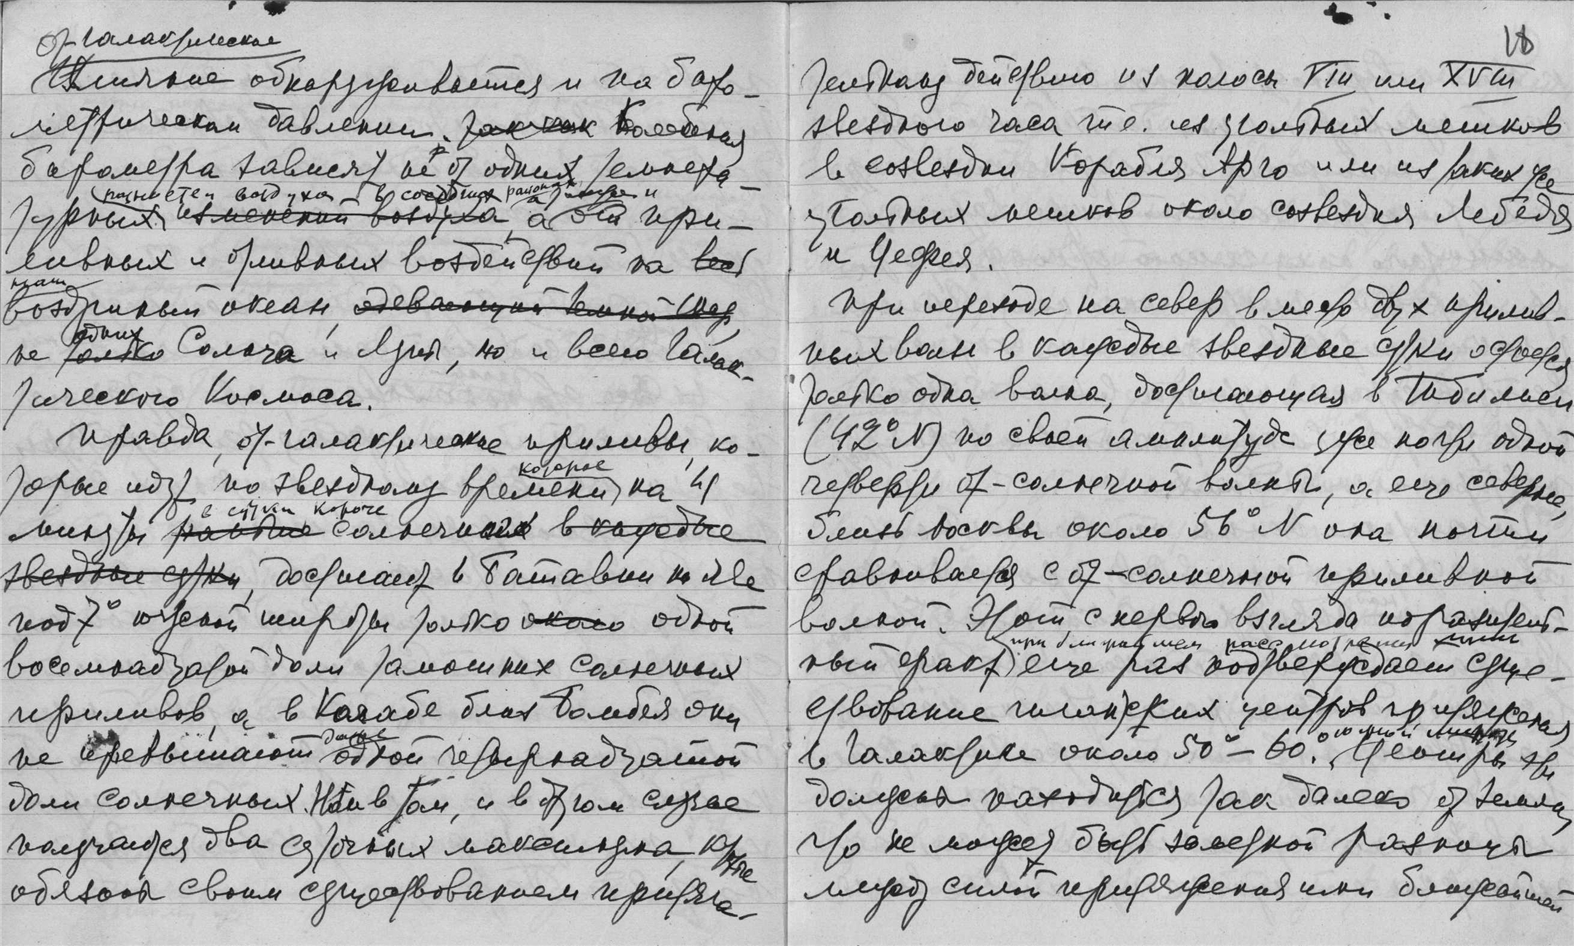 от-галактическое
Влияние обнаруживается и на баро-
метрическом давлении. так как Колебания
барометра зависят не от одних темпера-
разностей воздуха в соседних районах и
турных изменений воздуха, а от при-
ливных и отливных воздействий на весь
наш
воздушный океан, одевающий земной шар,
одних
не только Солнца и Луны, но и всего Галак-
тического Космоса.
Правда, от-галактические приливы, ко-
которое
торые идут по звездному времени, на 4
в сутки короче
минуты солнечных в каждые
звездные сутки, достигают в Батавии на Яве
под 7° южной широты только около одной
восемнадцатой доли тамошних солнечных
приливов, а в Колабе близ Бомбея они
даже
не превышают одной четырнадцатой
доли солнечных. Но и в том, и в другом случае
получаются два суточных максимума, которые
обязаны своим существованием притяга-
18
тельному действию из полосы VIII или XVIII
звездного часа т.е. из угольных мешков
в созвездии Корабля Арго или из таких же
угольных мешков около созвездия Лебедя
и Цефея.
При переходе на север вместо двух прилив-
ных волн в каждые звездные сутки остается
только одна волна, достигающая в Тбилиси
(42° N) по своей амплитуде уже почти одной
четверти от-солнечной волны, а еще севернее,
близ Москвы около 56° N она почти
сравнивается с от-солнечной приливной
волной. Этот с первого взгляда поразитель-
при ближайшем рассмотрении
ный факт еще раз подтверждает суще-
ствование гигантских центров притяжения
в Галактике около 50°–60°. Центры эти
должны находиться так далеко от земли,
что не может быть заметной разницы
между силой притяжения или ближайшей